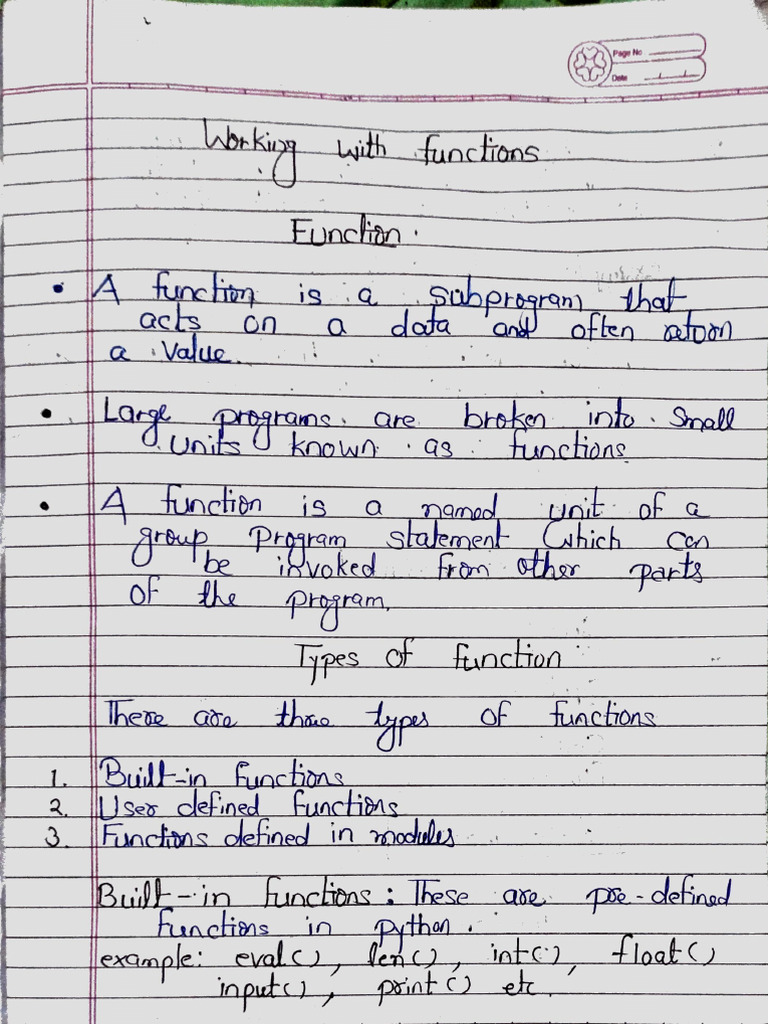 Page No
Date
Working with functions
Function.
• A function is a subprogram that
acts on a data and often return
a value.
• Large programs are broken into small
units known as functions
• A function is a named unit of a
group Program statement which can
be invoked from other parts
of the program.
Types of function
There are three types of functions
1. Built-in functions
2. User defined functions
3. Functions defined in modules
Built-in functions: These are pre-defined
functions in python.
example: eval(), len(), int(), float()
input(), print() etc.